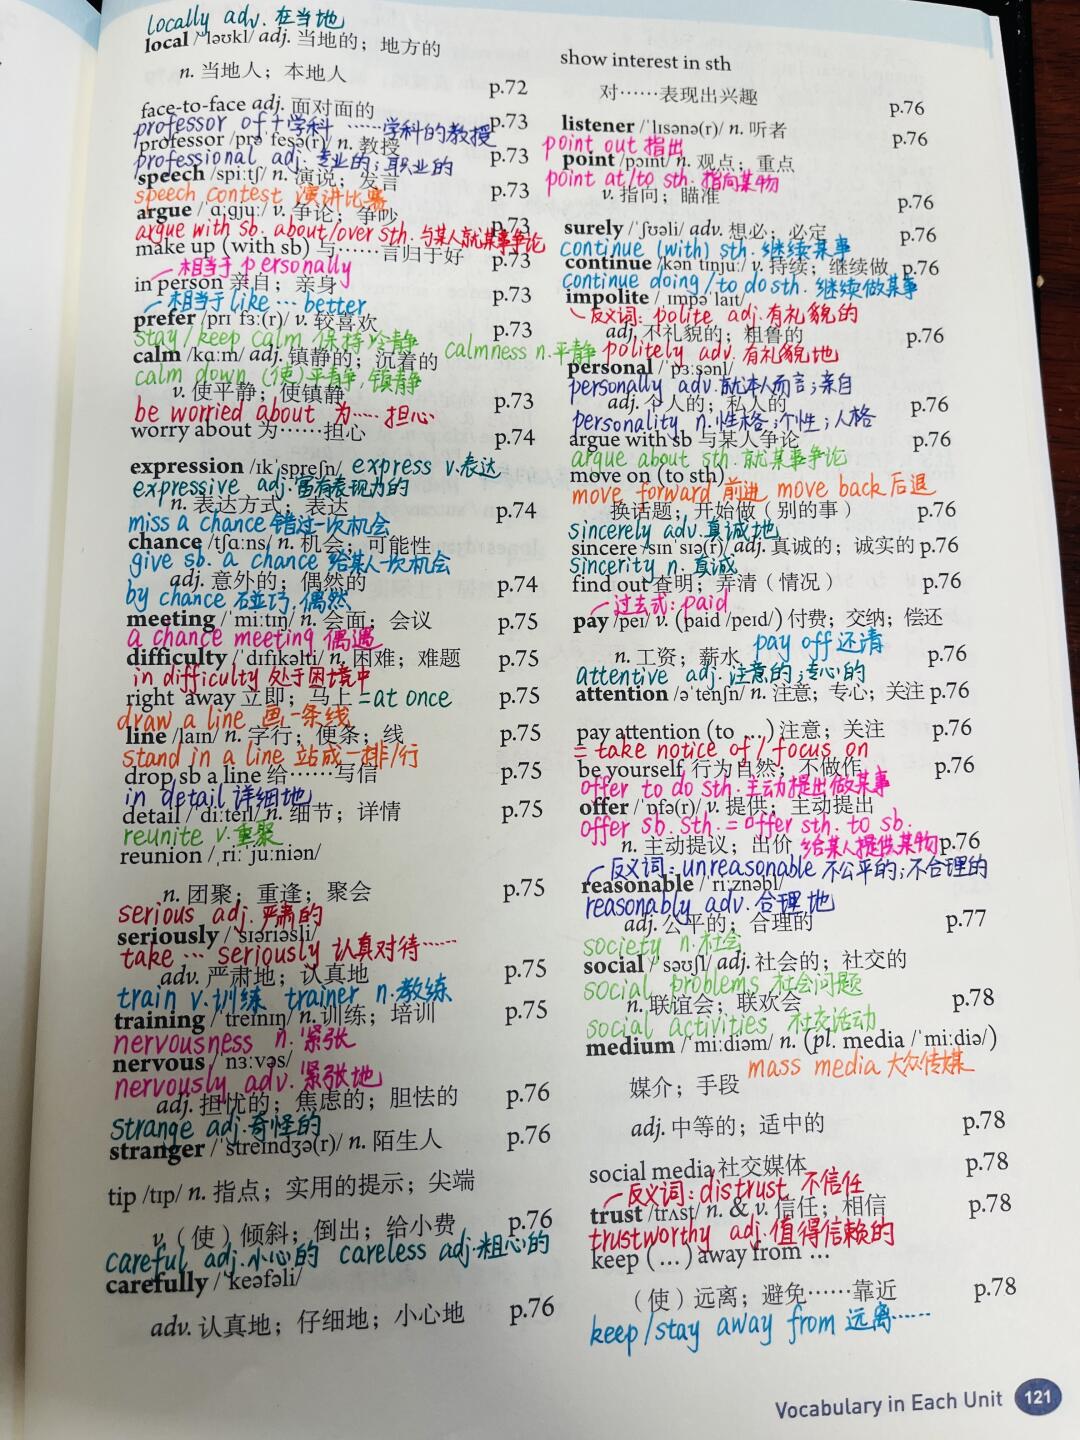 locally adv. 在当地
local /ˈləʊkl/ adj. 当地的；地方的
n. 当地人；本地人 p.72
face-to-face adj. 面对面的 p.73
professor of + 学科 ……学科的教授
professor /prəˈfesə(r)/ n. 教授 p.73
professional adj. 专业的；职业的
speech /spiːtʃ/ n. 演说；发言 p.73
speech contest 演讲比赛
argue /ˈɑːɡjuː/ v. 争论；争吵 p.73
argue with sb. about/over sth. 与某人就某事争论
make up (with sb) 与……言归于好 p.73
相当于 personally
in person 亲自；亲身 p.73
相当于 like … better
prefer /prɪˈfɜː(r)/ v. 较喜欢 p.73
stay/keep calm 保持冷静
calm /kɑːm/ adj. 镇静的；沉着的 calmness n. 平静
calm down (使)平静，镇静
v. 使平静；使镇静 p.73
be worried about 为…… 担心
worry about 为……担心 p.74
expression /ɪkˈspreʃn/ express v. 表达
expressive adj. 富有表现力的
n. 表达方式；表达 p.74
miss a chance 错过一次机会
chance /tʃɑːns/ n. 机会；可能性
give sb. a chance 给某人一次机会
adj. 意外的；偶然的 p.74
by chance 碰巧，偶然
meeting /ˈmiːtɪŋ/ n. 会面；会议 p.75
a chance meeting 偶遇
difficulty /ˈdɪfɪkəlti/ n. 困难；难题 p.75
in difficulty 处于困境中
right away 立即；马上 = at once p.75
draw a line 画一条线
line /laɪn/ n. 字行；便条；线 p.75
stand in a line 站成一排/行
drop sb a line 给……写信 p.75
in detail 详细地
detail /ˈdiːteɪl/ n. 细节；详情 p.75
reunite v. 重聚
reunion /ˌriːˈjuːniən/
n. 团聚；重逢；聚会 p.75
serious adj. 严肃的
seriously /ˈsɪəriəsli/
take … seriously 认真对待……
adv. 严肃地；认真地 p.75
train v. 训练 trainer n. 教练
training /ˈtreɪnɪŋ/ n. 训练；培训 p.75
nervousness n. 紧张
nervous /ˈnɜːvəs/
nervously adv. 紧张地
adj. 担忧的；焦虑的；胆怯的 p.76
strange adj. 奇怪的
stranger /ˈstreɪndʒə(r)/ n. 陌生人 p.76
tip /tɪp/ n. 指点；实用的提示；尖端
v.（使）倾斜；倒出；给小费 p.76
careful adj. 小心的 careless adj. 粗心的
carefully /ˈkeəfəli/
adv. 认真地；仔细地；小心地 p.76
show interest in sth
对……表现出兴趣 p.76
listener /ˈlɪsənə(r)/ n. 听者 p.76
point out 指出
point /pɔɪnt/ n. 观点；重点
point at/to sth. 指向某物
v. 指向；瞄准 p.76
surely /ˈʃʊəli/ adv. 想必；必定 p.76
continue (with) sth. 继续某事
continue /kənˈtɪnjuː/ v. 持续；继续做 p.76
continue doing/to do sth. 继续做某事
impolite /ˌɪmpəˈlaɪt/
反义词：polite adj. 有礼貌的
adj. 不礼貌的；粗鲁的 p.76
politely adv. 有礼貌地
personal /ˈpɜːsənl/
personally adv. 就本人而言；亲自
adj. 个人的；私人的 p.76
personality n. 性格；个性；人格
argue with sb 与某人争论 p.76
argue about sth. 就某事争论
move on (to sth)
move forward 前进 move back 后退
换话题；开始做（别的事） p.76
sincerely adv. 真诚地
sincere /sɪnˈsɪə(r)/ adj. 真诚的；诚实的 p.76
sincerity n. 真诚
find out 查明；弄清（情况） p.76
过去式：paid
pay /peɪ/ v. (paid /peɪd/) 付费；交纳；偿还
pay off 还清
n. 工资；薪水 p.76
attentive adj. 注意的；专心的
attention /əˈtenʃn/ n. 注意；专心；关注 p.76
pay attention (to …) 注意；关注 p.76
= take notice of / focus on
be yourself 行为自然；不做作 p.76
offer to do sth. 主动提出做某事
offer /ˈɒfə(r)/ v. 提供；主动提出
offer sb. sth. = offer sth. to sb.
n. 主动提议；出价 给某人提供某物 p.76
反义词：unreasonable 不公平的；不合理的
reasonable /ˈriːznəbl/
reasonably adv. 合理地
adj. 公平的；合理的 p.77
society n. 社会
social /ˈsəʊʃl/ adj. 社会的；社交的
social problems 社会问题
n. 联谊会；联欢会 p.78
social activities 社交活动
medium /ˈmiːdiəm/ n. (pl. media /ˈmiːdiə/)
mass media 大众传媒
媒介；手段
adj. 中等的；适中的 p.78
social media 社交媒体 p.78
反义词：distrust 不信任
trust /trʌst/ n. & v. 信任；相信 p.78
trustworthy adj. 值得信赖的
keep (…) away from …
（使）远离；避免……靠近 p.78
keep/stay away from 远离……
Vocabulary in Each Unit 121